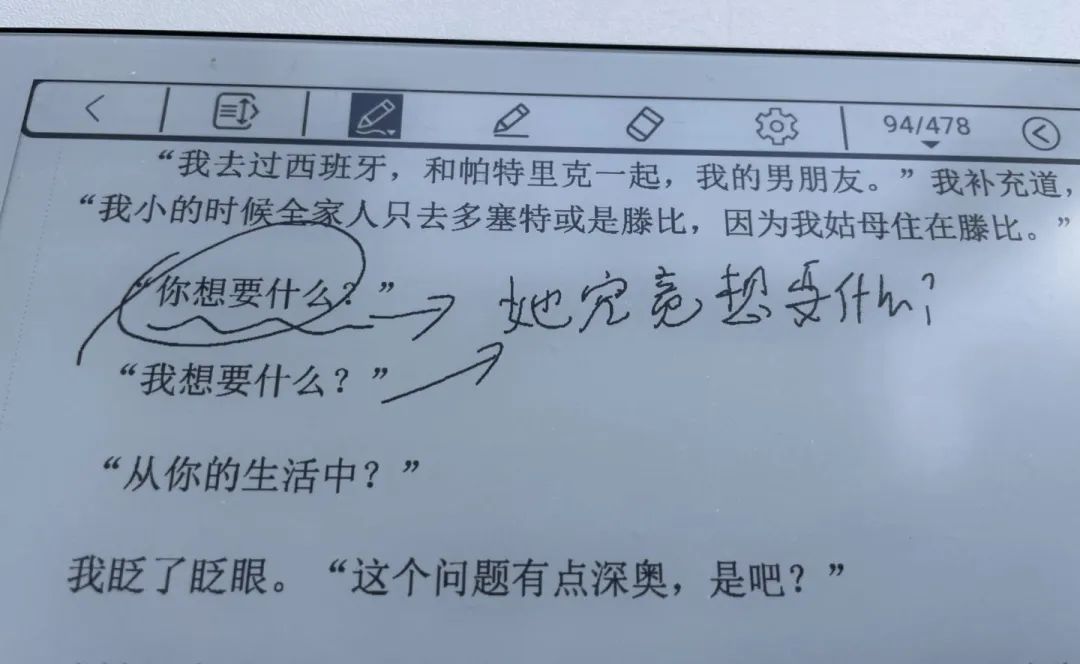 94/478
“我去过西班牙，和帕特里克一起，我的男朋友。”我补充道，
“我小的时候全家人只去多塞特或是滕比，因为我姑母住在滕比。”
“你想要什么？” 她究竟想要什么?
“我想要什么？”
“从你的生活中？”
我眨了眨眼。“这个问题有点深奥，是吧？”